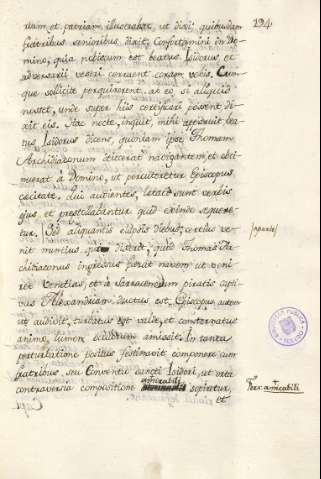 194
rium et patriam illustrabat, ut dixi, quibusdam
fratribus senioribus dixit, Confortamini in Do-
mino, quia nobiscum est beatus Isidorus et
adversarii vestri corruent coram vobis. Cum-
que sollicite perquirerent, ab eo, si aliquid
nosset, unde super his certificari possent di-
xit eis. Hac nocte, inquit, mihi apparuit bea-
tus Isidorus dicens, quoniam ipse Thomam
Archidiaconum detinerat navigantem, et obti-
nuerat a Domino, ut percuteretur Episcopus
cecitate, qui audientes, letati sunt verbis
ejus et prestolabantur quid exinde sequere-
tur. Sed aliquantis elapsis diebus, certus ve-
nit nuntius, qui dixerat, quod Thomas Ar-
chidiaconus ingressus fuerat navem ut veni-
ret Venetias, et a Sarracenorum piratis capti-
vus Alexandriam ductus est, Episcopus autem
ut audivit, turbatus est valde, et consternatus
animo, lumen oculorum amissit. In tanta
perturbatione positus festinavit componere cum
fratribus, seu Conventu sancti Isidori, ut orta
controversia compositione amicabili sopiretur,
et
Cap.